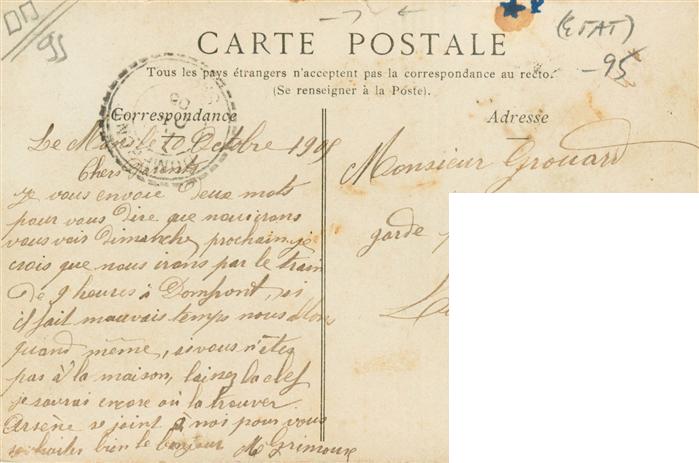 (ETAT)
95
-95
CARTE POSTALE
Tous les pays étrangers n'acceptent pas la correspondance au recto.
(Se renseigner à la Poste).
Correspondance
Le Mans le 10 Octobre 1905
Chers Parents
Je vous envoie deux mots
pour vous dire que nous irons
vous voir dimanche prochain, je
crois que nous irons par le train
de 9 heures à Domfront, si
il fait mauvais temps nous allons
quand même, si vous n'êtes
pas à la maison, laissez la clef
je saurai encore où la trouver
Arsène se joint à nos pour vous
souhaiter bien le bonjour M Grimoux
Adresse
Monsieur Grouard
garde